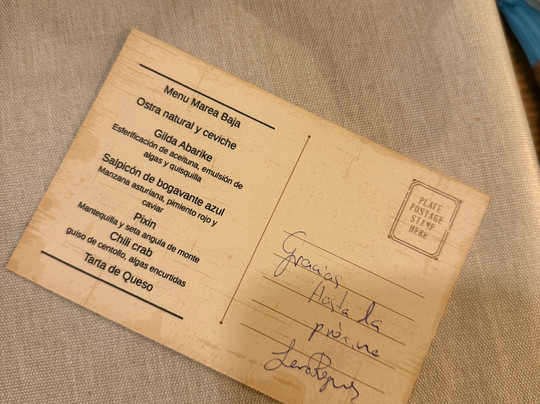 Menu Marea Baja
Ostra natural y ceviche
Gilda Abarike
Esferificación de aceituna, emulsión de
algas y quisquilla
Salpicón de bogavante azul
Manzana asturiana, pimiento rojo y
caviar
Pixin
Mantequilla y seta angula de monte
Chili crab
guiso de centollo, algas encurtidas
Tarta de Queso
PLACE
POSTAGE
STAMP
HERE
Gracias
Hasta la
próxima